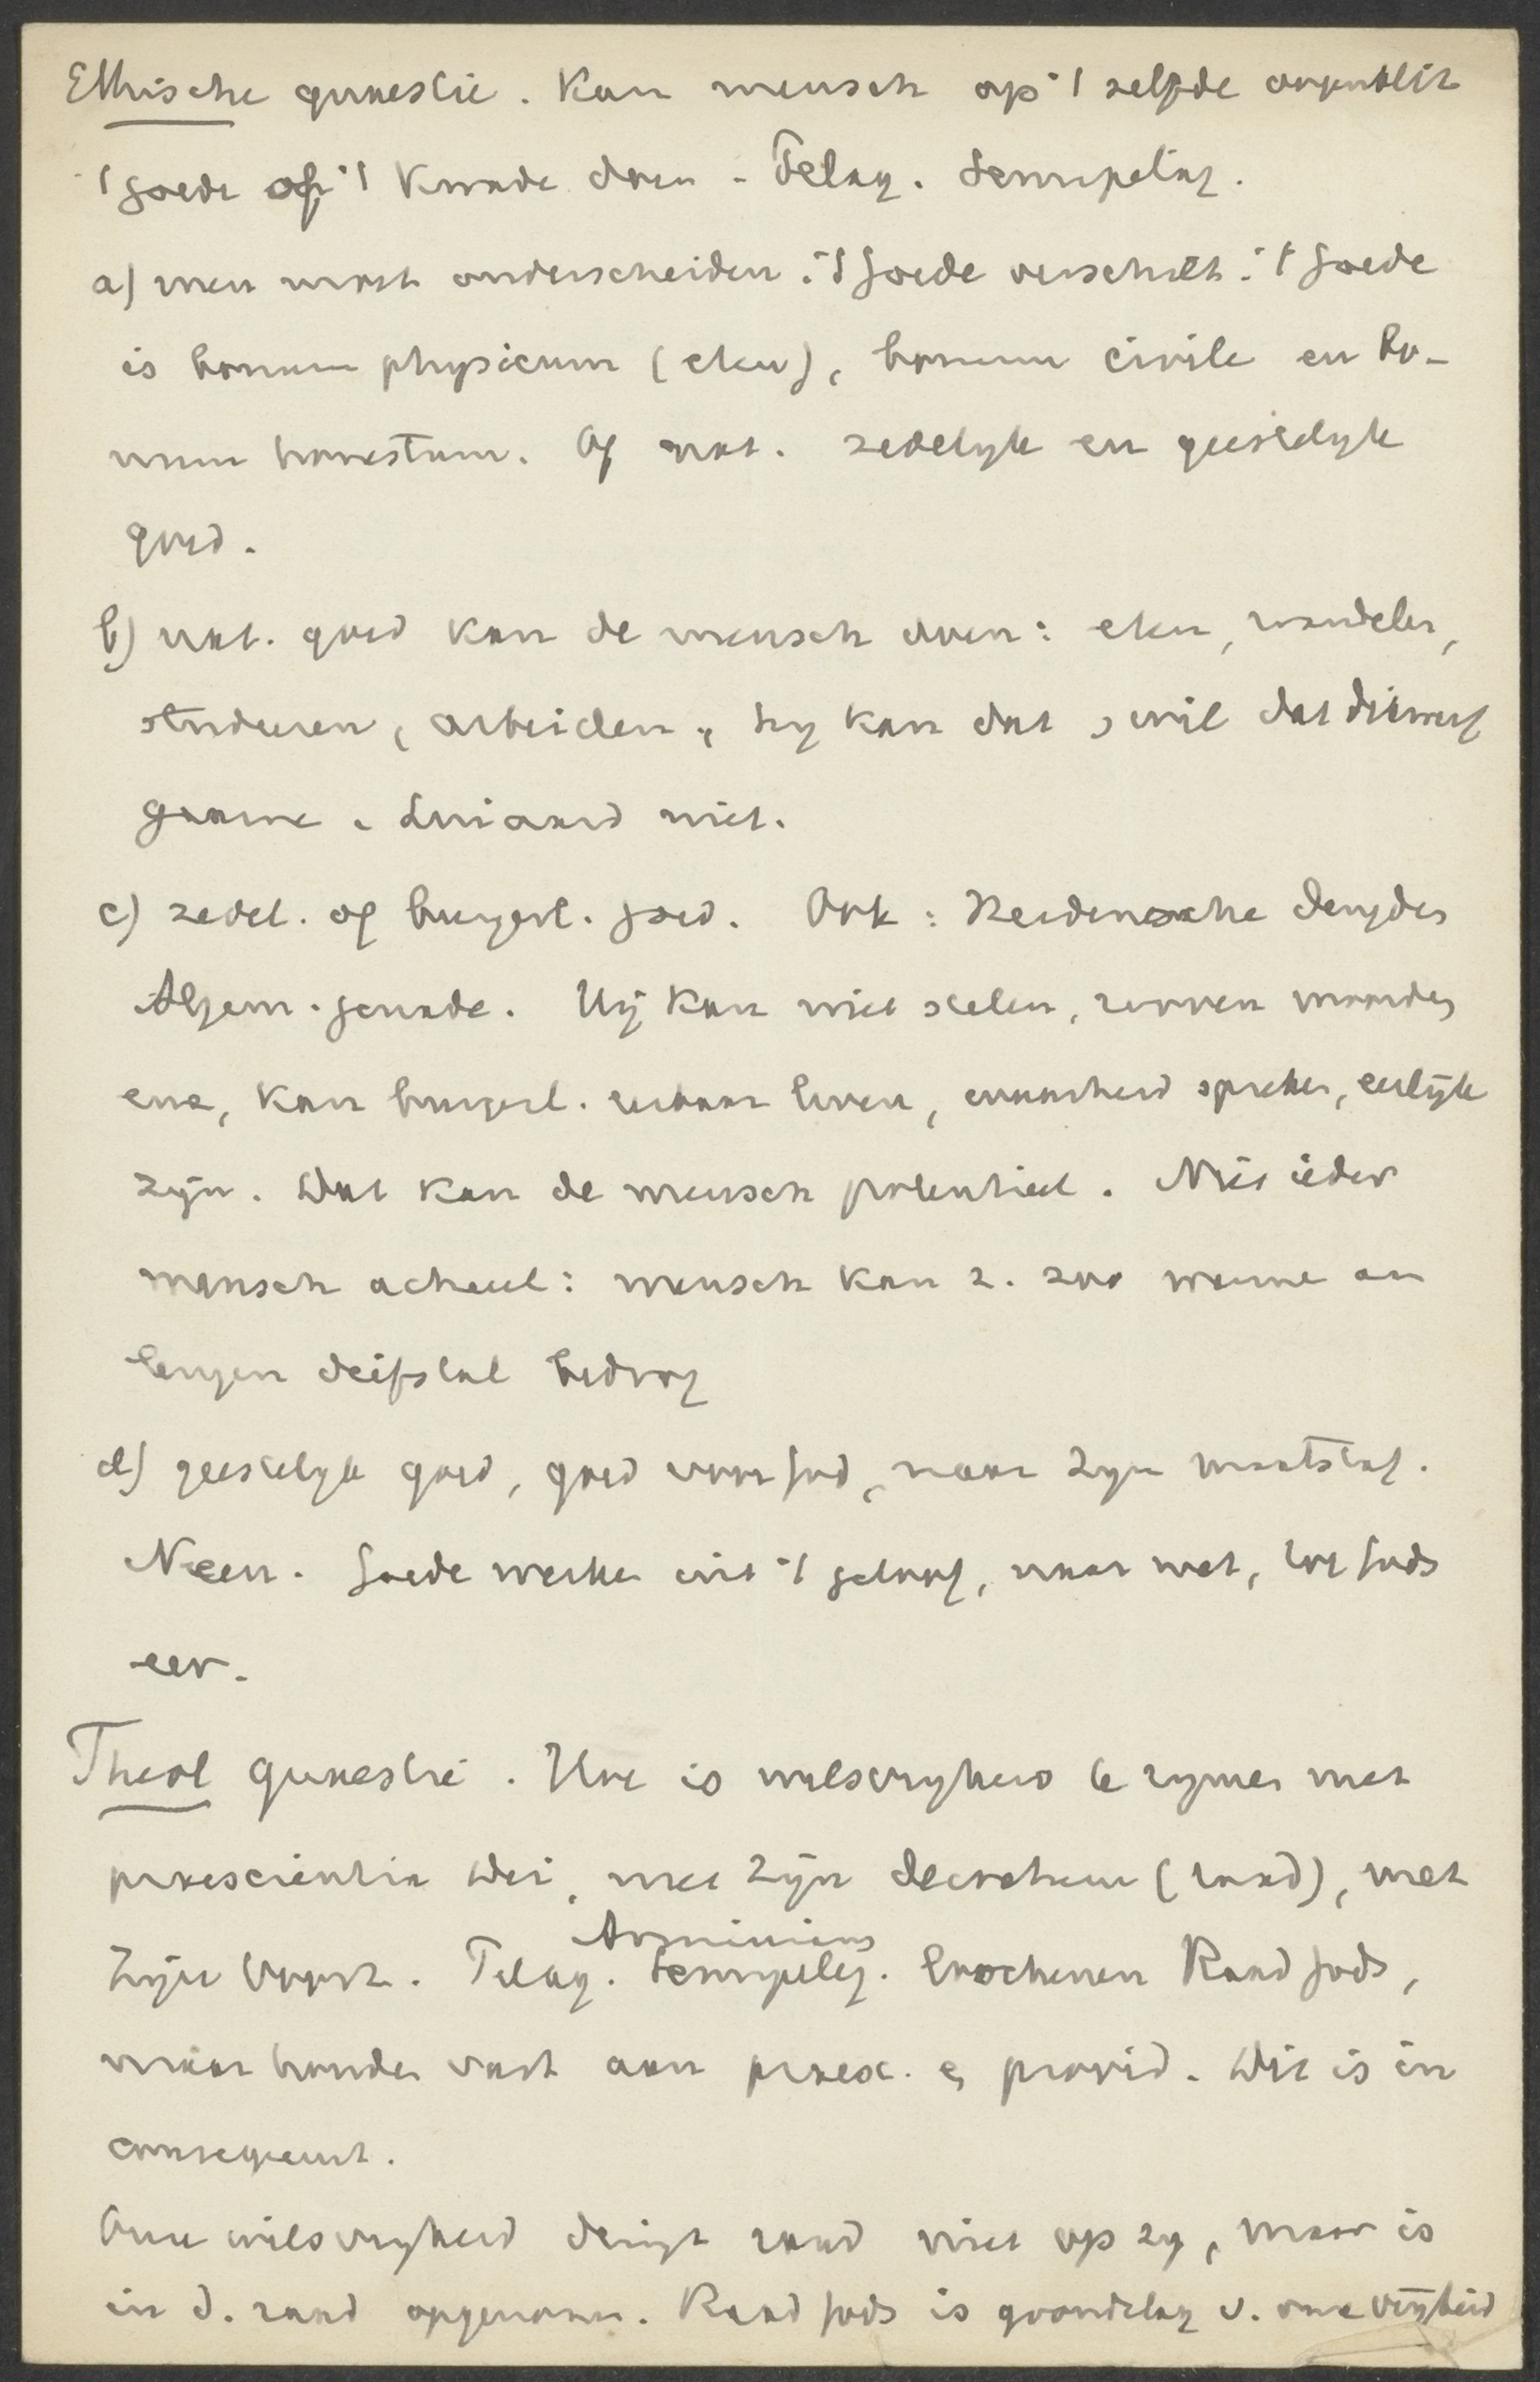 Ethische quaestie. Kan mensch op 't zelfde oogenblik
't goede of 't kwade doen - Pelag. Semipelag.
a) men moet onderscheiden: 't goede verschilt: 't goede
is bonum physicum (eten), bonum civile en bo-
num honestum. Of nat. zedelyk en geestelyk
goed.
b) nat. goed kan de mensch doen: eten, wandelen,
studeeren, arbeiden, hy kan dat, wil dat dikwerf
gaarne. Luiaard niet.
c) zedel. of burgerl. goed. Ook: Heidensche deugden
Algem. genade. Hij kan niet stelen, rooven moorden
enz, kan burgerl. eerbaar leven, waarheid spreken, eerlijk
zijn. Dat kan de mensch potentieel. Niet ieder
mensch actueel: mensch kan z. zoo wennen aan
leugen diefstal bedrog
d) geestelyk goed, goed voor God, naar zyn maatstaf.
Neen. Goede werken uit 't geloof, naar wet, tot Gods
eer.
Theol quaestie. Hoe is wilsvryheid te rymen met
praescientia Dei, met zijn decretum (raad), met
Arminians
zijn voorz. Pelag. Semipelag. loochenen Raad Gods,
maar houden vast aan praesc. en provid. Dit is in
consequent.
Onze wilsvryheid dringt raad niet op zy, maar is
in d. raad opgenomen. Raad Gods is grondslag v. onze vrijheid